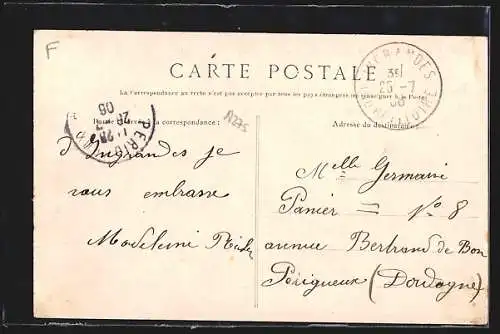 F
CARTE POSTALE
La Correspondance au recto n'est pas acceptée par tous les pays étrangers (Se renseigner à la Poste)
INGRANDES
35
25 - 7
06
PERIGUEUX
26 - 7
06
A275
la correspondance :
Adresse du destinataire
d'Ingrandes je
vous embrasse
Madeleine
Melle Germaine
Panier = No 8
avenue Bertrand de Bon
Périgueux (Dordogne)